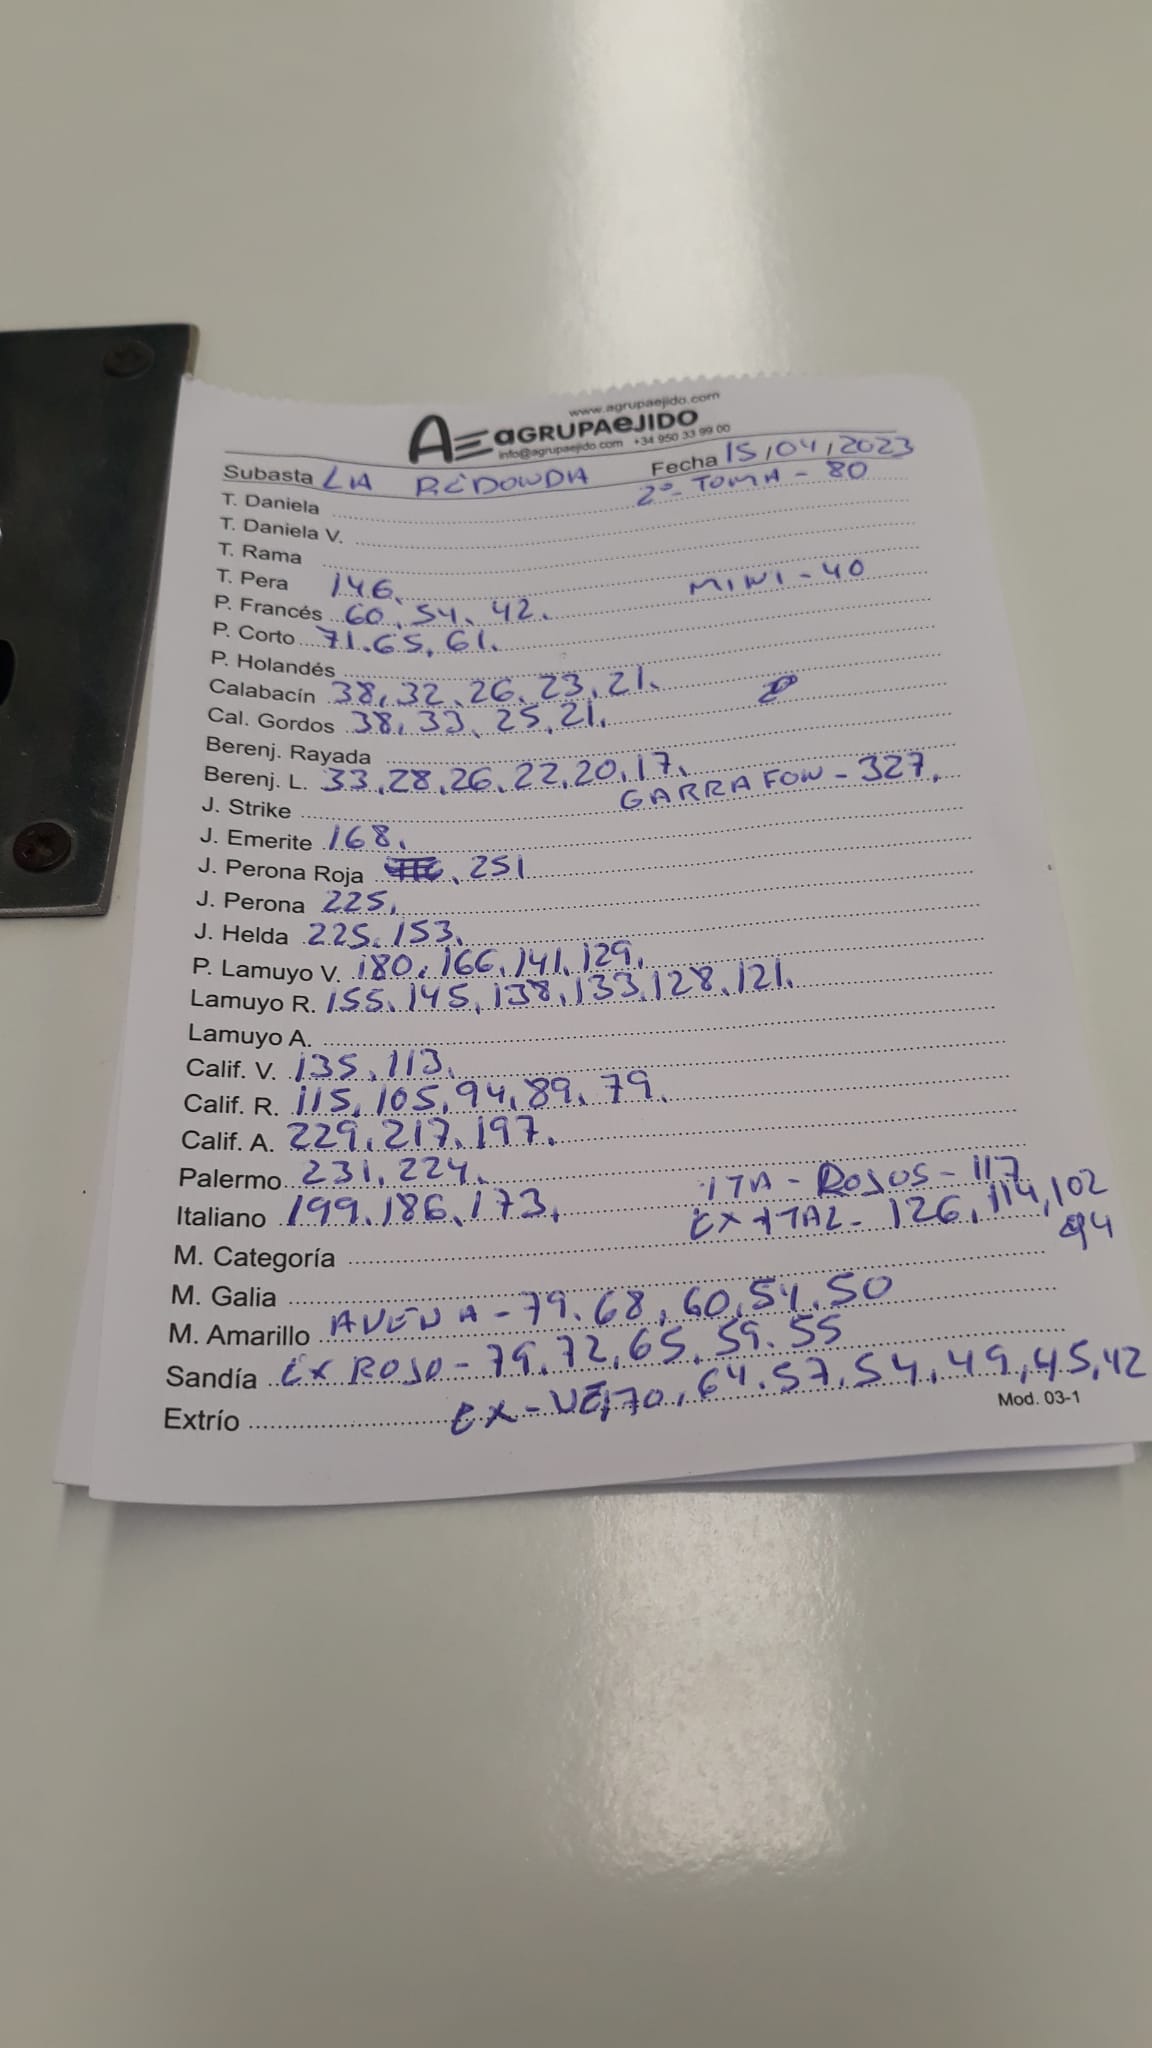 www.agrupaejido.com
AE aGRUPAeJIDO
info@agrupaejido.com +34 950 33 99 00
Subasta LA REDONDA Fecha 15/04/2023
T. Daniela 2º- TOMA - 80
T. Daniela V.
T. Rama
T. Pera 146. MINI - 40
P. Francés 60. 54. 42.
P. Corto 71. 65. 61.
P. Holandés
Calabacín 38. 32. 26. 23. 21.
Cal. Gordos 38. 33. 25. 21.
Berenj. Rayada
Berenj. L. 33. 28. 26. 22. 20. 17.
J. Strike GARRAFON - 327.
J. Emerite 168.
J. Perona Roja . 251
J. Perona 225.
J. Helda 225. 153.
P. Lamuyo V. 180. 166. 141. 129.
Lamuyo R. 155. 145. 138. 133. 128. 121.
Lamuyo A.
Calif. V. 135. 113.
Calif. R. 115. 105. 94. 89. 79.
Calif. A. 229. 217. 197.
Palermo 231. 224. ITA - ROJOS - 117
Italiano 199. 186. 173. EX ITAL - 126. 114, 102
94
M. Categoría
M. Galia
M. Amarillo AVENA - 79. 68. 60. 54. 50
Sandía EX ROJO - 79. 72. 65. 59. 55
Extrío EX - VE, 70. 64. 57. 54. 49. 45. 42
Mod. 03-1